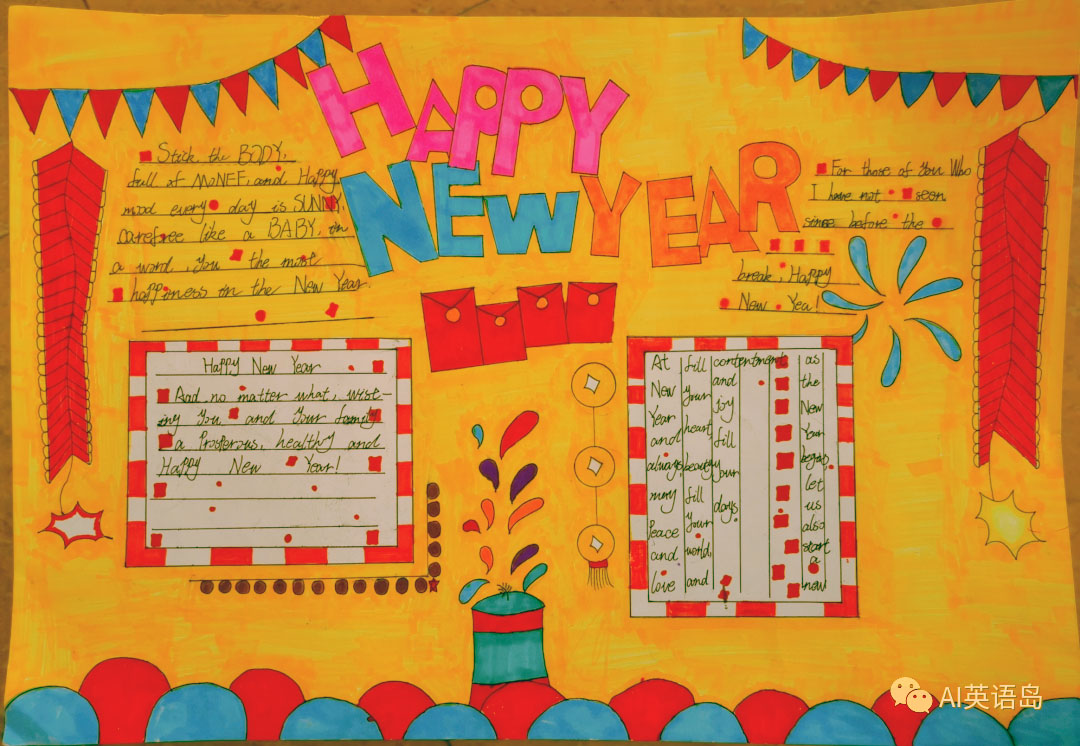 HAPPY
NEW YEAR
Stick the BODY,
full of MONEF, and Happy
mood every day is SUNNY,
carefree like a BABY, in
a word, You the most
happiness in the New Year.
For those of You Who
I have not seen
since before the
break, Happy
New Yea!
Happy New Year
And no matter what, wist-
ing You and Your family
a Prosterous, healthy and
Happy New Year!
At New Year and always, may Peace and love
fill your heart, beauty fill your world, and
contentment and joy fill your days.
as the New Year began, let us also start a new
AI英语岛